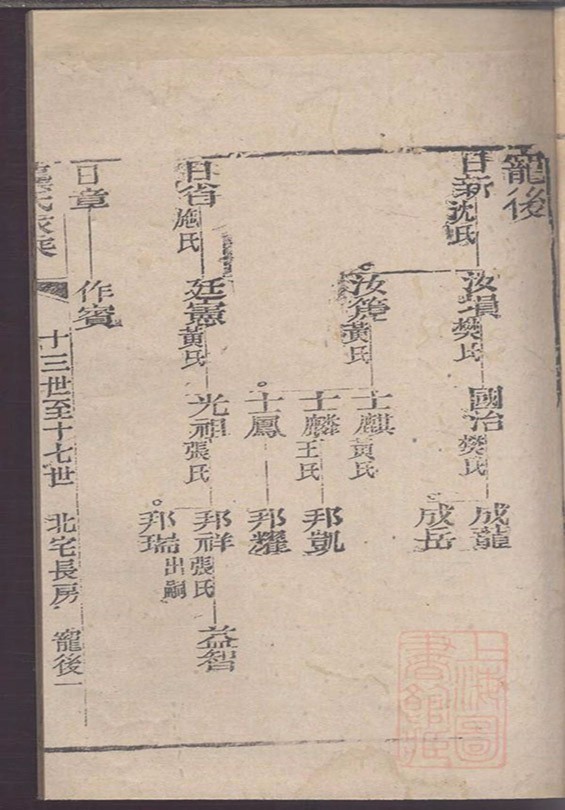 寵後
日新沈氏
汝塤樊氏
國治樊氏
成龍
成岳
汝箎黃氏
士麒黃氏
士麟王氏
邦凱
士鳳
邦耀
日省施氏
廷憲黃氏
光祖張氏
邦祥張氏
益智
邦瑞出嗣
日章
作賓
氏家乘
十三世至十七世
北宅長房
寵後一
上海圖書館藏